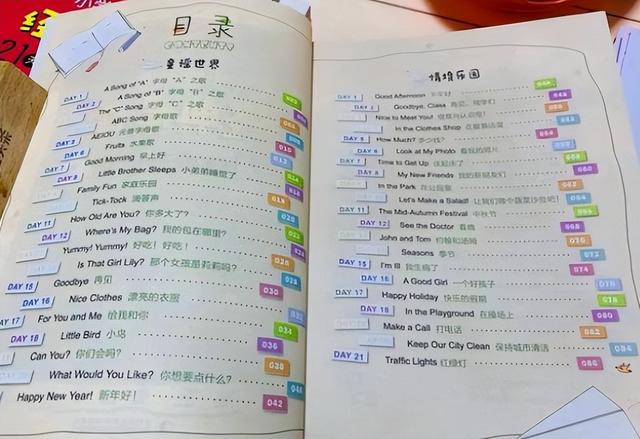 目录
CONTENTS
童谣世界
DAY 1 A Song of "A" 字母 "A" 之歌
DAY 2 A Song of "B" 字母 "B" 之歌
The "C" Song 字母 "C" 之歌
ABC Song 字母歌
DAY 5 AEIOU 元音字母歌
DAY 6 Fruits 水果歌 010
Good Morning 早上好 012
DAY 8 Little Brother Sleeps 小弟弟睡觉了 014
Family Fun 家庭乐园 016
Tick-Tock 滴答声 018
DAY 11 How Old Are You? 你多大了? 020
DAY 12 Where's My Bag? 我的包在哪里? 022
Yummy! Yummy! 好吃!好吃! 024
Is That Girl Lily? 那个女孩是莉莉吗? 026
DAY 15 Goodbye 再见 028
DAY 16 Nice Clothes 漂亮的衣服 030
DAY 17 For You and Me 给我和你 032
DAY 18 Little Bird 小鸟 034
Can You? 你们会吗? 036
What Would You Like? 你想要点什么? 038
Happy New Year! 新年好! 042
情境乐园
DAY 1 Good Afternoon 下午好
DAY 2 Goodbye, Class 再见,同学们
Nice to Meet You! 很高兴认识你!
In the Clothes Shop 在服装店里
DAY 5 How Much? 多少钱? 054
DAY 6 Look at My Photo 看我的照片
DAY 7 Time to Get Up 该起床了
DAY 8 My New Friends 我的新朋友们 060
In the Park 在公园里 062
Let's Make a Salad! 让我们做个蔬菜沙拉吧! 064
DAY 11 The Mid-Autumn Festival 中秋节 066
DAY 12 See the Doctor 看病 068
John and Tom 约翰和汤姆 070
Seasons 季节 072
DAY 15 I'm Ill 我生病了 074
DAY 16 A Good Girl 一个好孩子 076
DAY 17 Happy Holiday 快乐的假期 078
DAY 18 In the Playground 在操场上 080
Make a Call 打电话 082
Keep Our City Clean 保持城市清洁 084
DAY 21 Traffic Lights 红绿灯 086